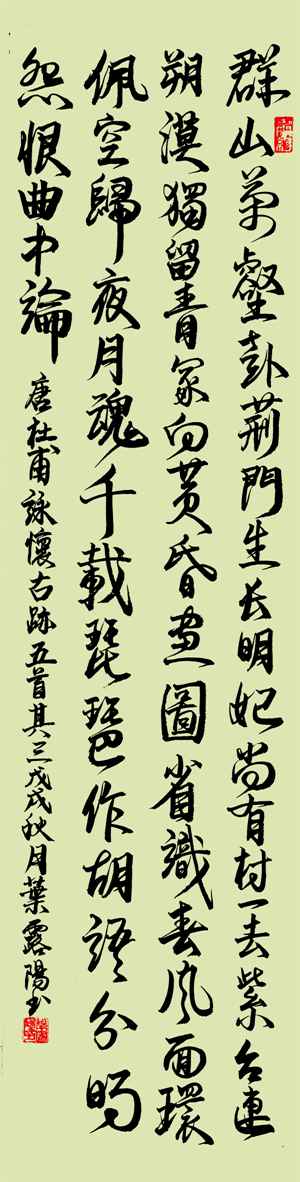 群山萬壑赴荊門生長明妃尚有村一去紫台連
朔漠獨留青冢向黃昏畫圖省識春風面環
佩空歸夜月魂千載琵琶作胡語分明
怨恨曲中論
唐杜甫詠懷古跡五首其三戊戌秋月葉露陽書